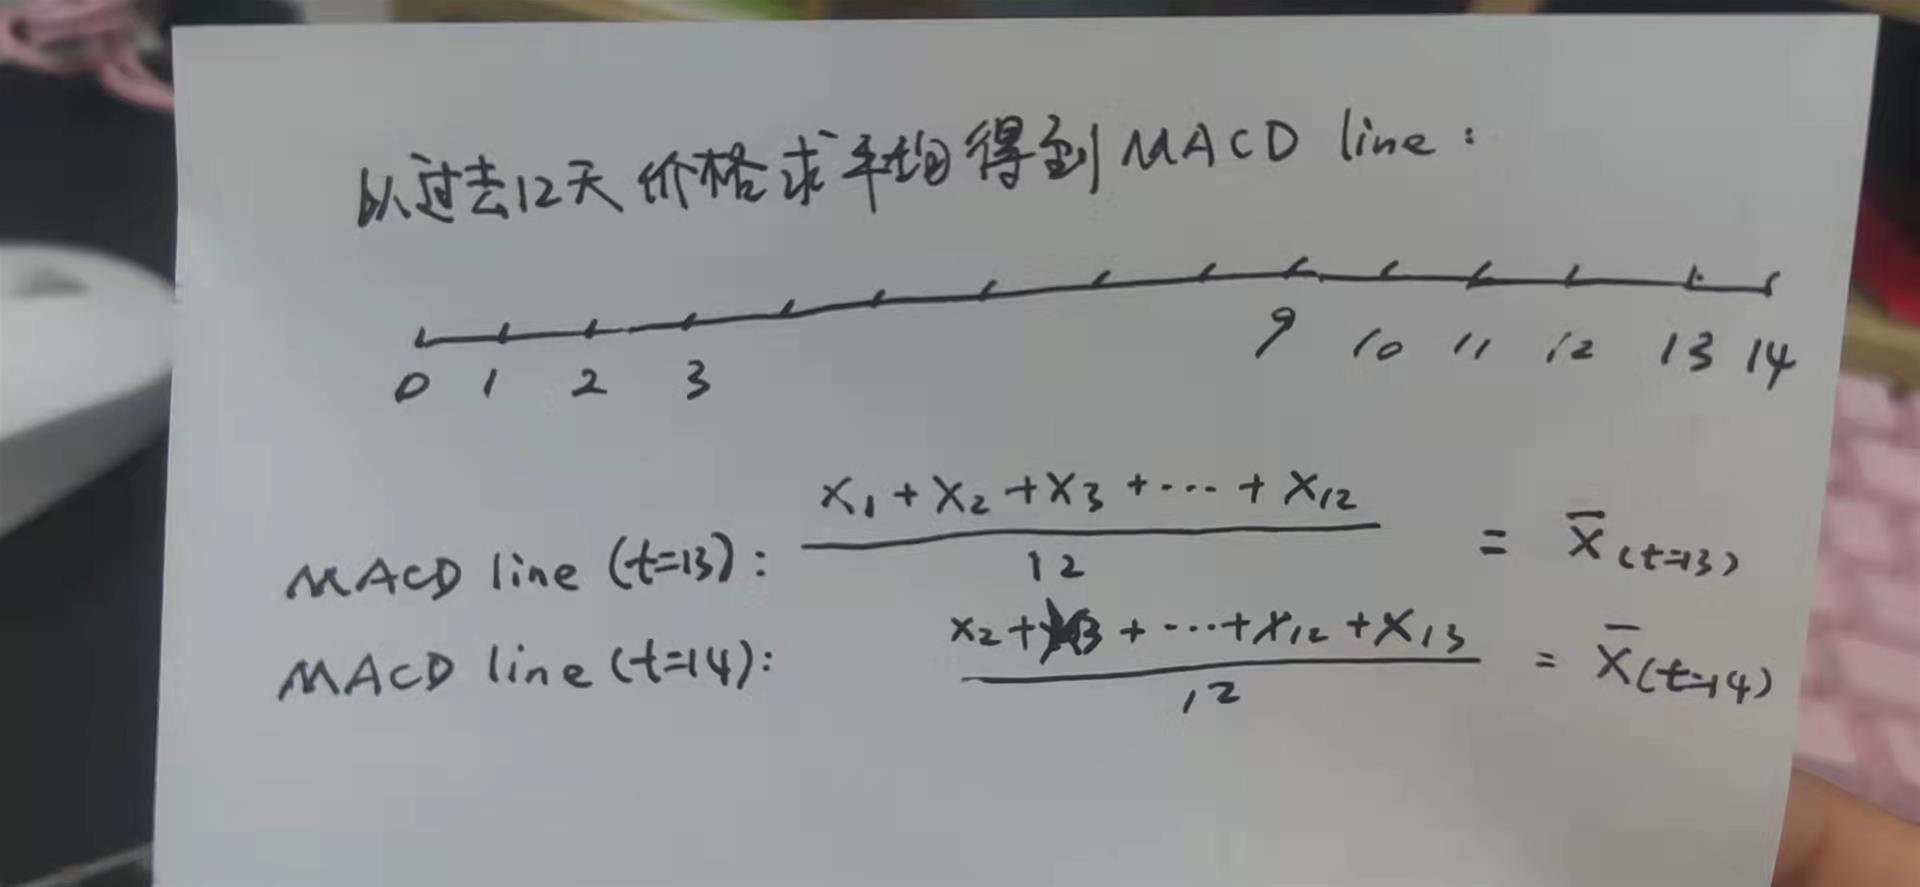 以过去12天价格求平均得到MACD line:
0 1 2 3 9 10 11 12 13 14
MACD line (t=13): (x₁+x₂+x₃+···+x₁₂)/12 = x̄(t=13)
MACD line (t=14): (x₂+x₃+···+x₁₂+x₁₃)/12 = x̄(t=14)